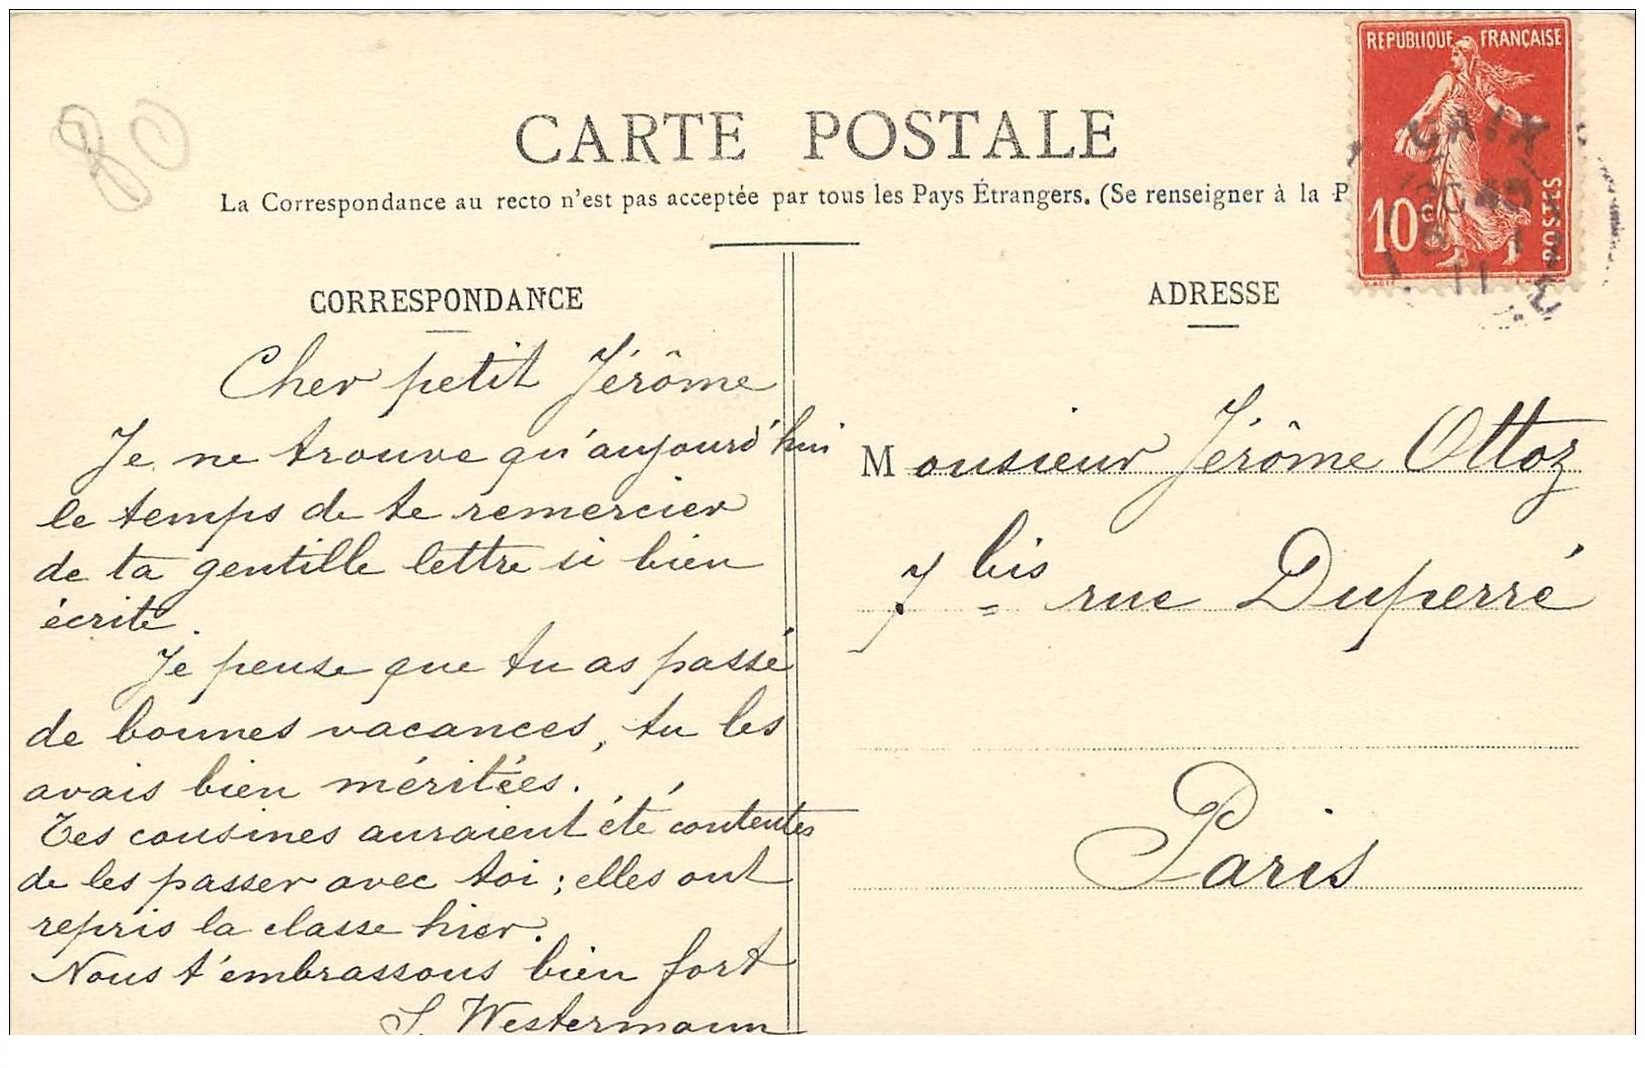 80
CARTE POSTALE
La Correspondance au recto n'est pas acceptée par tous les Pays Étrangers. (Se renseigner à la P
REPUBLIQUE FRANÇAISE
10c
POSTES
CAIX
11
CORRESPONDANCE
Cher petit Jérôme
Je ne trouve qu'aujourd'hui
le temps de te remercier
de ta gentille lettre si bien
écrite.
Je pense que tu as passé
de bonnes vacances, tu les
avais bien méritées.
Tes cousines auraient été contentes
de les passer avec toi ; elles ont
repris la classe hier.
Nous t'embrassons bien fort
S. Westermann
ADRESSE
Monsieur Jérôme Ottoz
7 bis rue Duperré
Paris